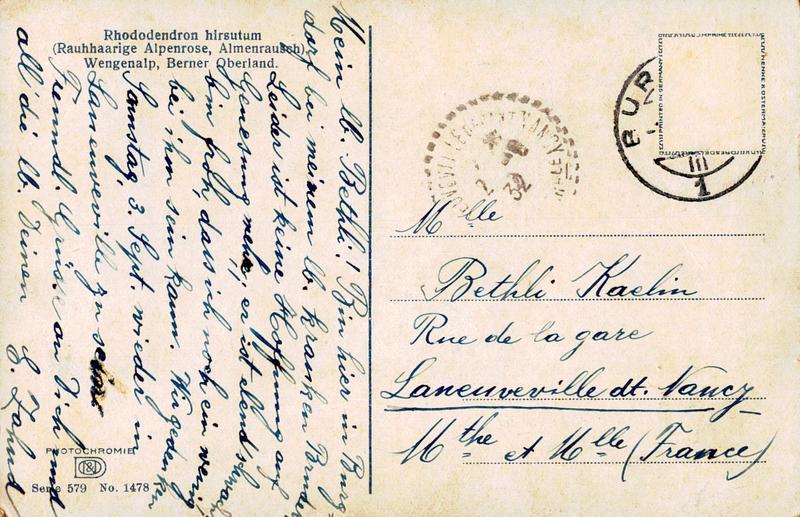 Rhododendron hirsutum
(Rauhhaarige Alpenrose, Almenrausch),
Wengenalp, Berner Oberland.
Mein lb. Bethli! Bin hier in Burg-
dorf bei meinem lb. kranken Bruder
Leider ist keine Hoffnung auf
Genesung mehr, er ist elend schwach
bin froh, dass ich noch ein wenig
bei ihm sein kann. Wir gedenken
Samstag, 3. Sept. wieder in
Laneuveville zu sein.
Freundl. Grüsse an Dich und
all die lb. Deinen
PHOTOCHROMIE
Serie 579 No. 1478
BUR
III
1
NANCY
32
PRINTED IN GERMANY
Mlle
Bethli Kaelin
Rue de la gare
Laneuveville dt. Nancy
Mthe et Mlle (France)